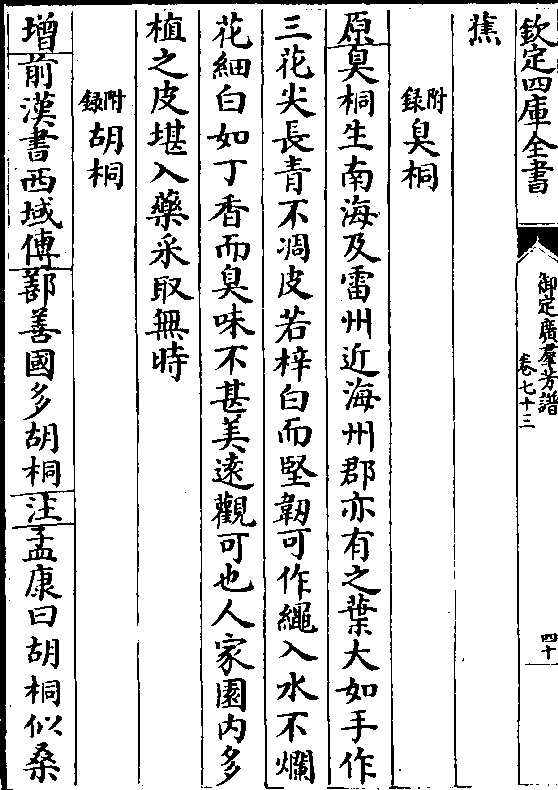 欽定四庫全書
御定廣羣芳譜
卷七十三
四十
蕉
附錄臭桐
原臭桐生南海及雷州近海州郡亦有之葉大如手作
三花尖長青不凋皮若梓白而堅韌可作繩入水不爛
花細白如丁香而臭味不甚美遠觀可也人家園内多
植之皮堪入藥采取無時
附錄胡桐
增前漢書西域傳鄯善國多胡桐注孟康曰胡桐似桑